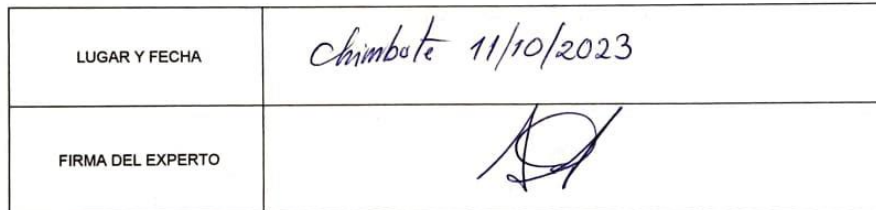 LUGAR Y FECHA
Chimbote 11/10/2023
FIRMA DEL EXPERTO